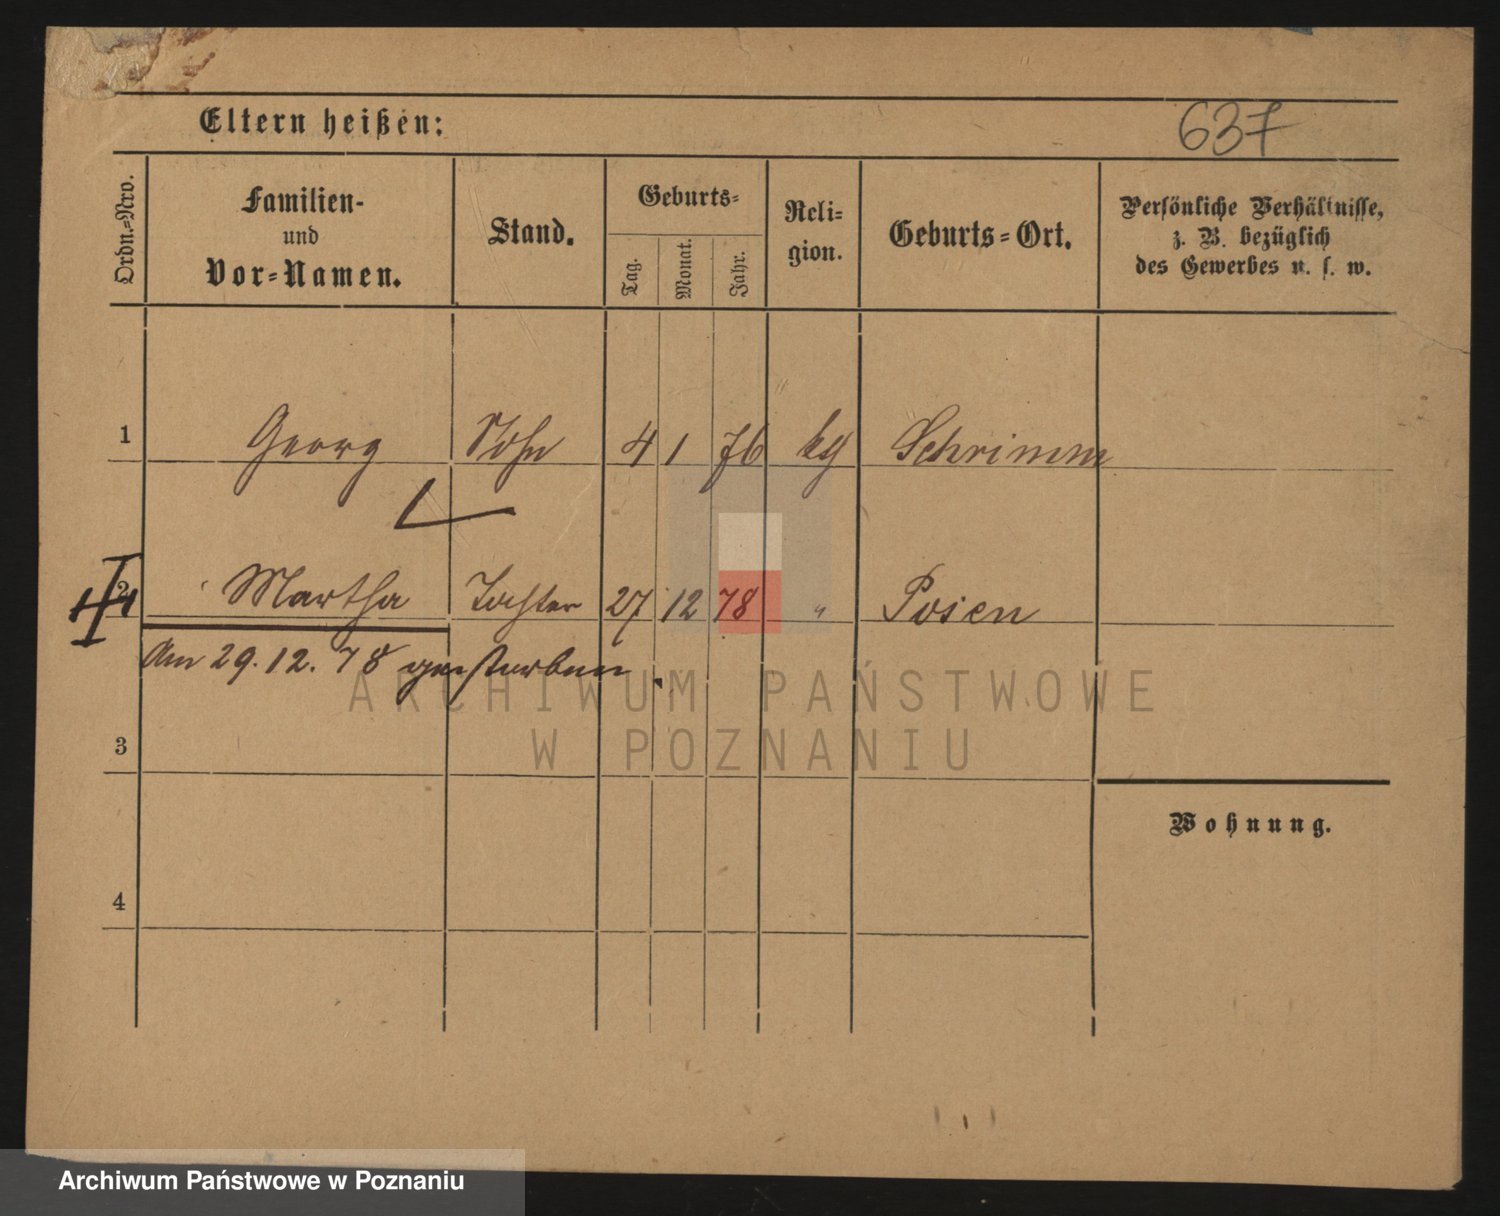 Eltern heißen:
637
Ordn.-Nro.
Familien-
und
Vor-Namen.
Stand.
Geburts-
Tag.
Monat.
Jahr.
Reli-
gion.
Geburts-Ort.
Persönliche Verhältnisse,
z. B. bezüglich
des Gewerbes u. s. w.
1 Georg Sohn 4 1 76 kg Schrimm
2 Martha Tochter 27 12 78 " Posen
Am 29. 12. 78 gestorben.
ARCHIWUM PAŃSTWOWE
W POZNANIU
3
Wohnung.
4
Archiwum Państwowe w Poznaniu